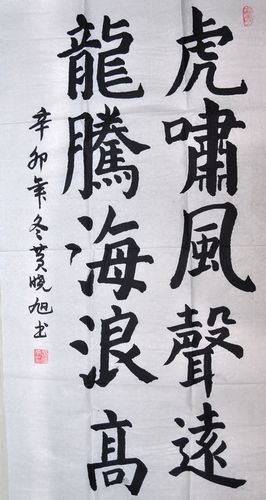 虎嘯風聲遠
龍騰海浪高
辛卯年冬黄曉旭书